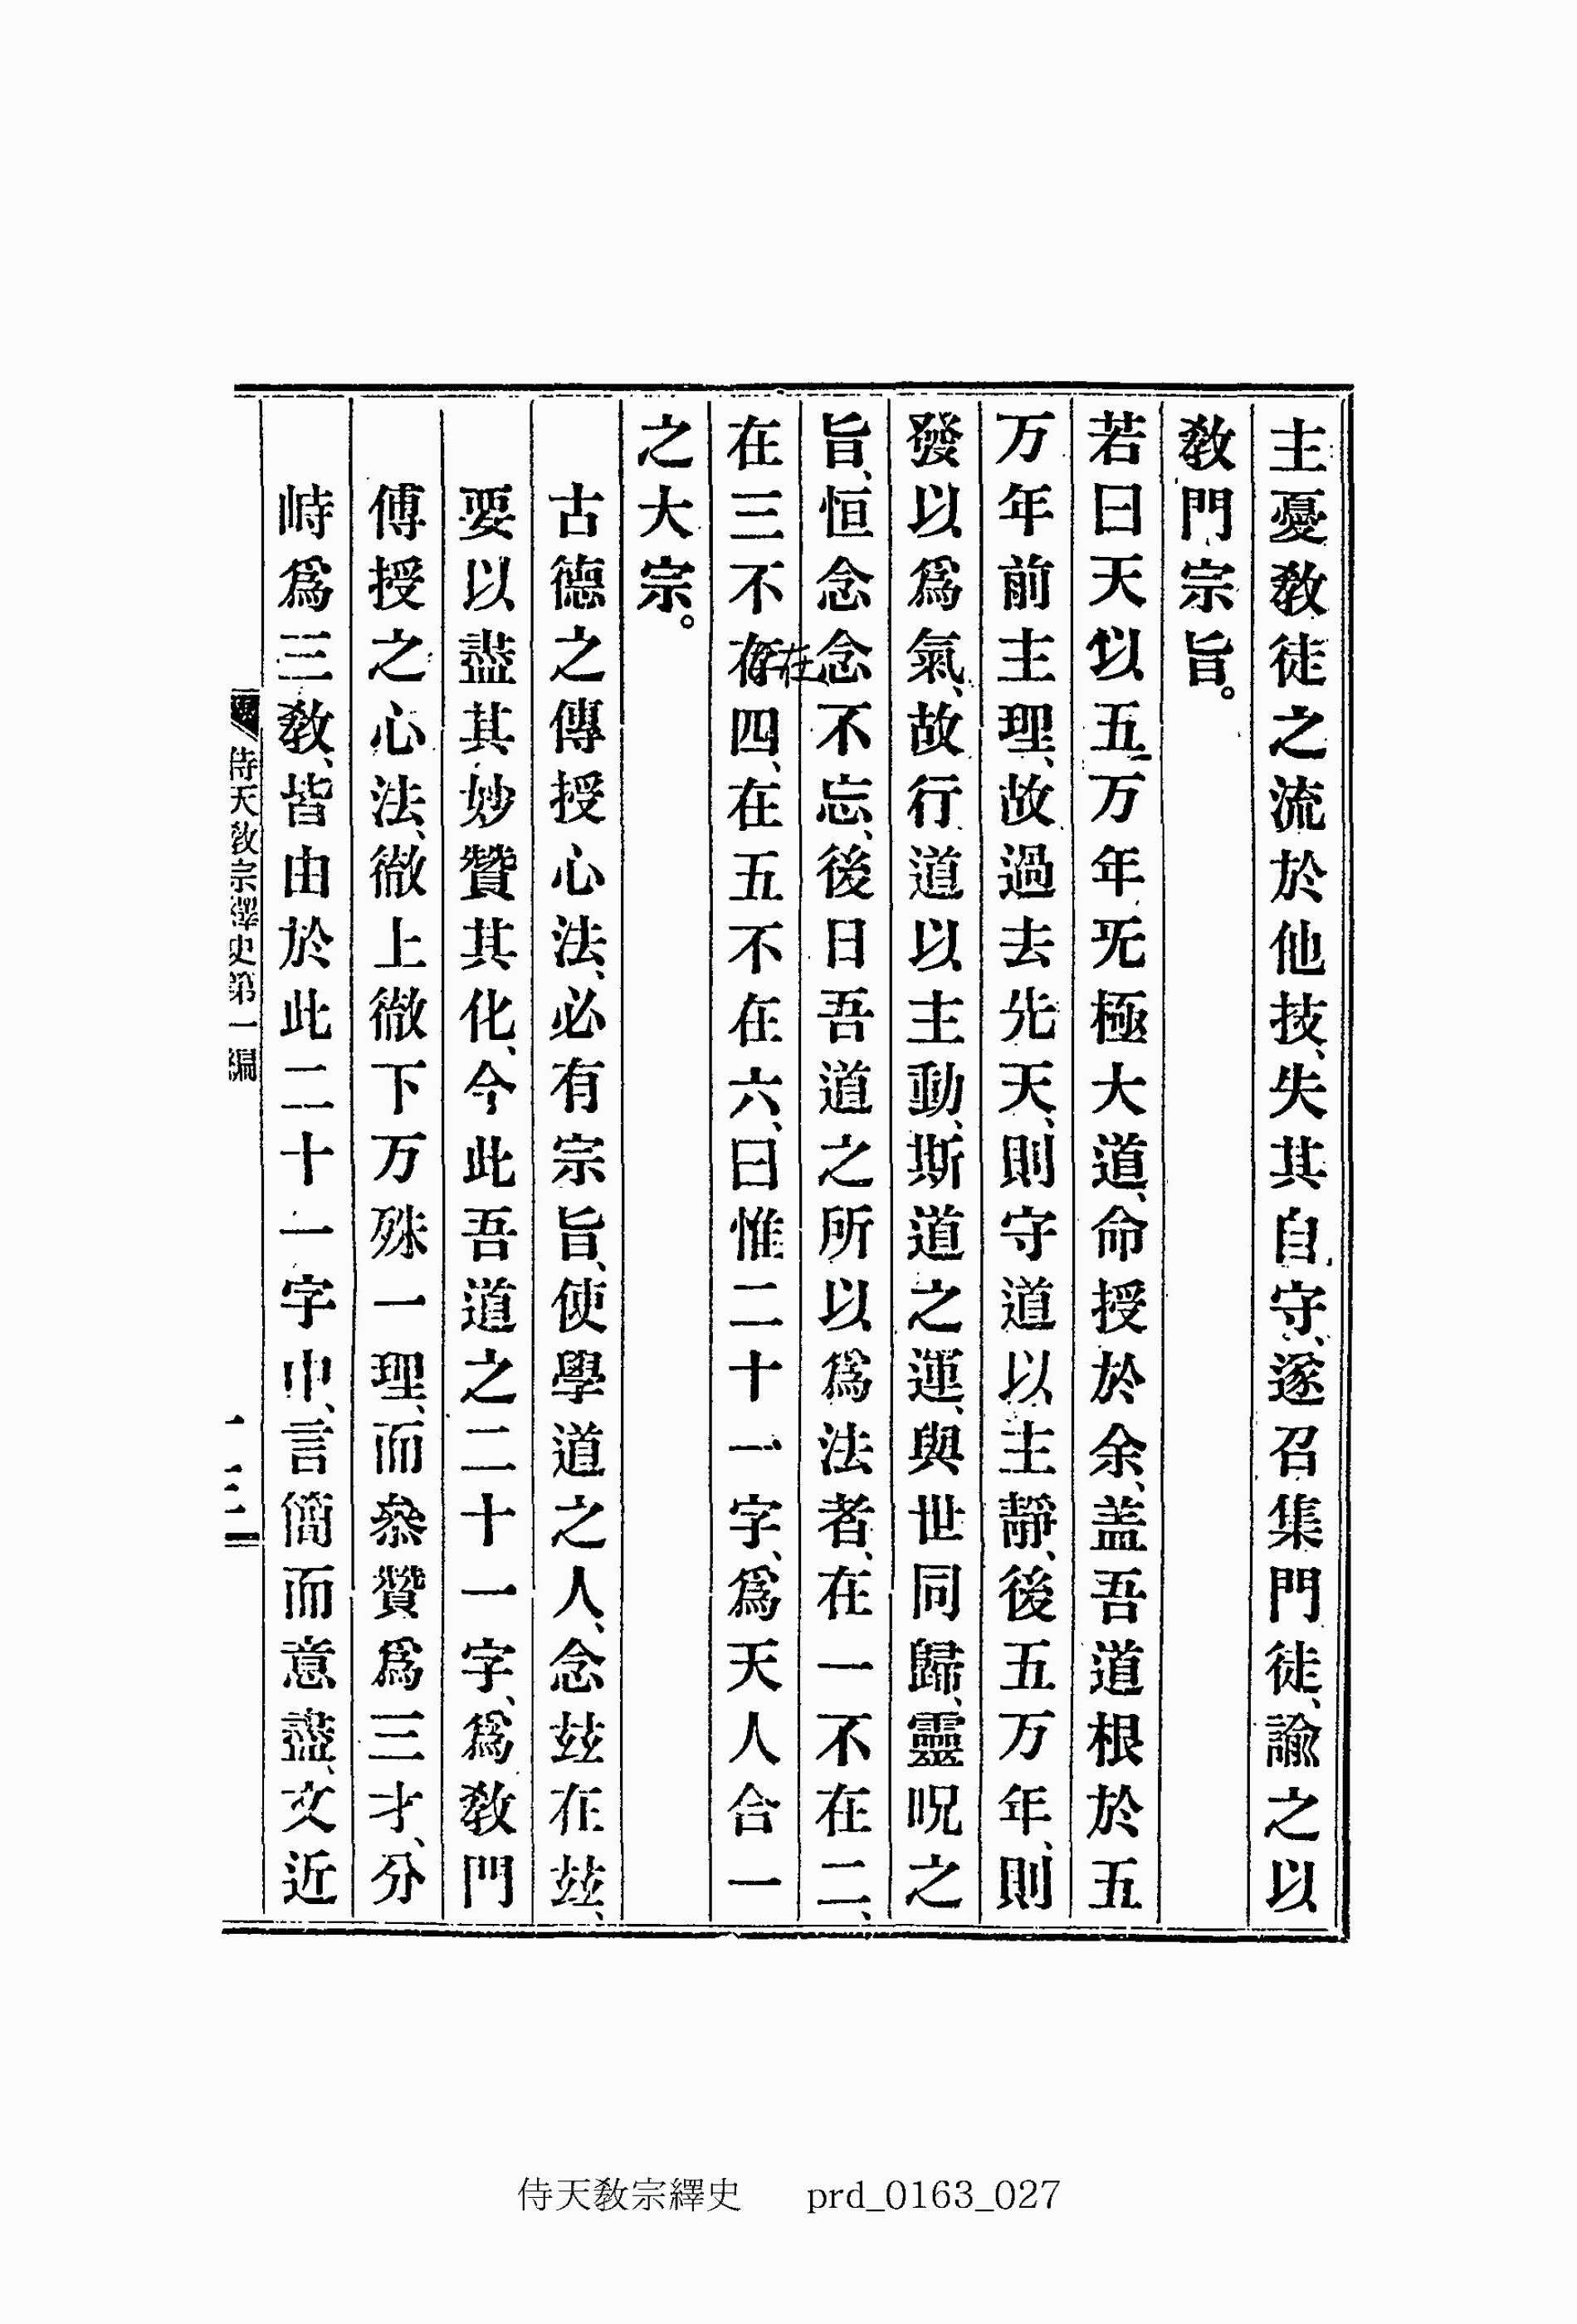 主憂敎徒之流於他技、失其自守、遂召集門徒、諭之以
敎門宗旨。
若曰天以五万年旡極大道、命授於余、盖吾道根於五
万年前主理、故過去先天、則守道以主靜、後五万年、則
發以爲氣、故行道以主動、斯道之運、與世同歸、靈呪之
旨、恒念念不忘、後日吾道之所以爲法者、在一不在二、
在三不在四、在五不在六、曰惟二十一字、爲天人合一
之大宗。
古德之傳授心法、必有宗旨、使學道之人、念玆在玆、
要以盡其妙贊其化、今此吾道之二十一字、爲敎門
傅授之心法、徹上徹下万殊一理、而叅贊爲三才、分
峙爲三敎、皆由於此二十一字中、言簡而意盡、文近
侍天敎宗繹史第一編
侍天敎宗繹史 prd_0163_027